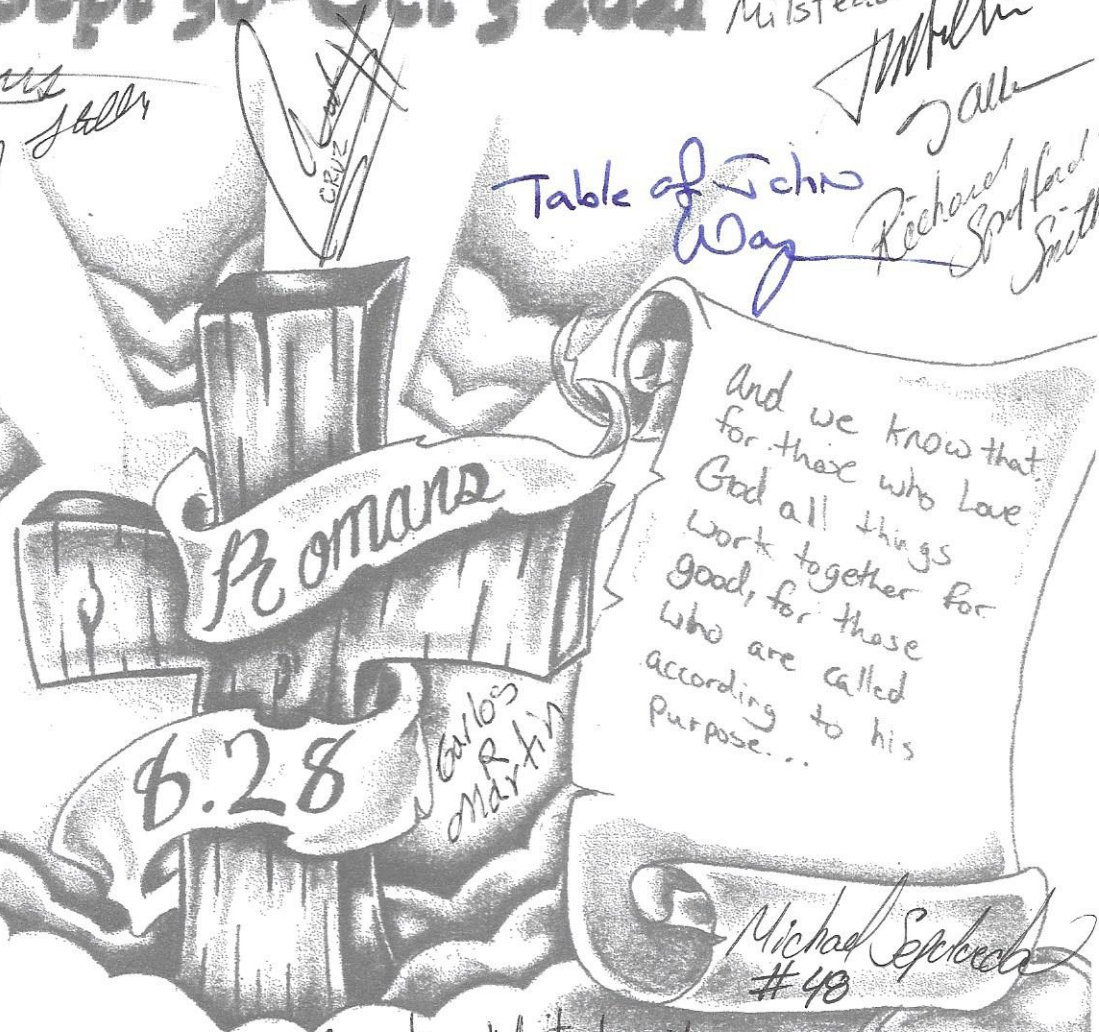 Sept 30-Oct 3 2021
CRUZ
Table of John
Way
Richard
Spofford
Smith
Romans
8.28
And we know that
for those who Love
God all things
work together for
good, for those
who are called
according to his
Purpose...
Carlos
R
Martin
Michael Sepulveda
#48